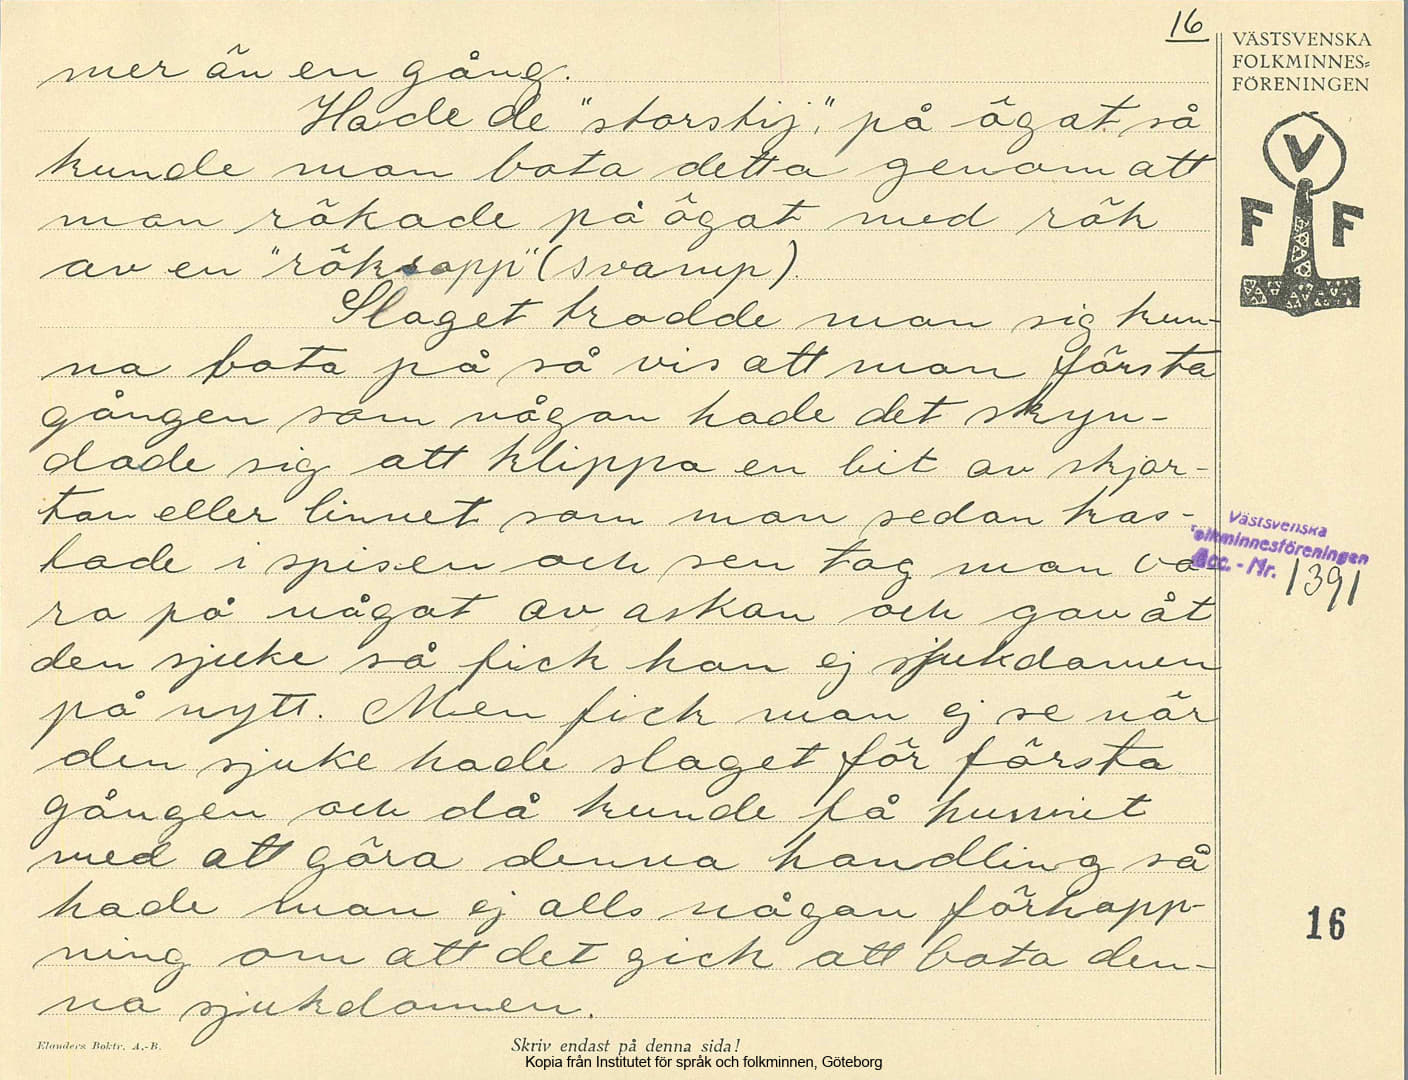 16
VÄSTSVENSKA
FOLKMINNES-
FÖRENINGEN
V
F F
mer än en gång.
Hade de "storstij" på ögat så
kunde man bota detta genom att
man rökade på ögat med rök
av en "röksopp" (svamp).
Slaget trodde man sig kun-
na bota på så vis att man första
gången som någon hade det skyn-
dade sig att klippa en bit av skjor-
tan eller linnet som man sedan kas-
tade i spisen och sen tog man va-
ra på något av askan och gav åt
den sjuke så fick han ej sjukdomen
på nytt. Men fick man ej se när
den sjuke hade slaget för första
gången och då kunde få hunnit
med att göra denna handling så
hade man ej alls någon förhopp-
ning om att det gick att bota den-
na sjukdomen.
Västsvenska
Folkminnesföreningen
Acc. - Nr. 1391
16
Elanders Boktr. A.-B.
Skriv endast på denna sida!
Kopia från Institutet för språk och folkminnen, Göteborg